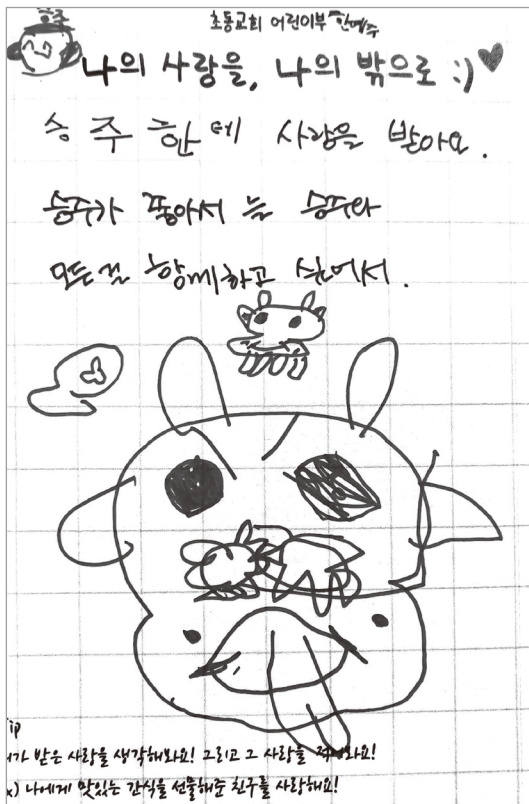 승주
초등교회 어린이부 한예주
나의 사랑을, 나의 밖으로 :)
승주한테 사랑을 받아요.
승주가 좋아서 늘 승주와
모든걸 함께하고 싶어서.
ip
가 받은 사랑을 생각해봐요! 그리고 그 사랑을 적어봐요!
x) 나에게 맛있는 간식을 선물해준 친구를 사랑해요!